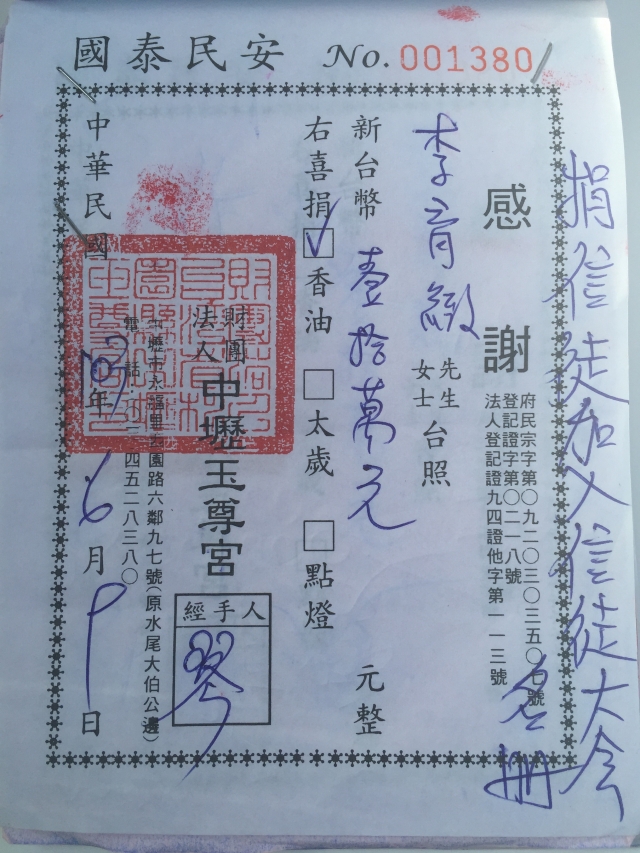 國泰民安 No. 001380
捐信徒加入信徒大會
名冊
感謝
府民宗字第〇九二〇三〇三五〇七號
登記證字第〇二一八號
法人登記證九四證他字第一一三號
李育緻 先生女士 台照
新台幣壹拾萬元 元整
右喜捐☑香油 □太歲 □點燈
財團法人 中壢玉尊宮
經手人
琴
中壢市永福里公園路六鄰九七號(原水尾大伯公邊)
電話:四五二八三八〇
中華民國 年 6 月 日